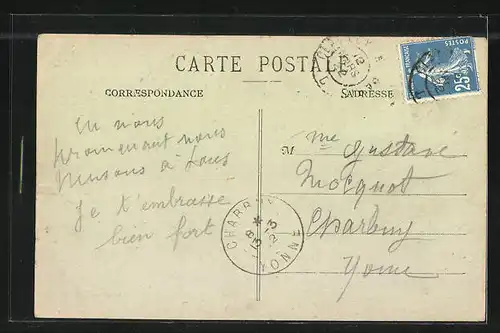 CARTE POSTALE
CORRESPONDANCE
ADRESSE
POSTES
25c
En nous
promenant nous
pensons à vous
Je t'embrasse
bien fort
M me Gustave
Mocquot
Charbuy
Yonne
CHARBUY
YONNE
8 *
13-3